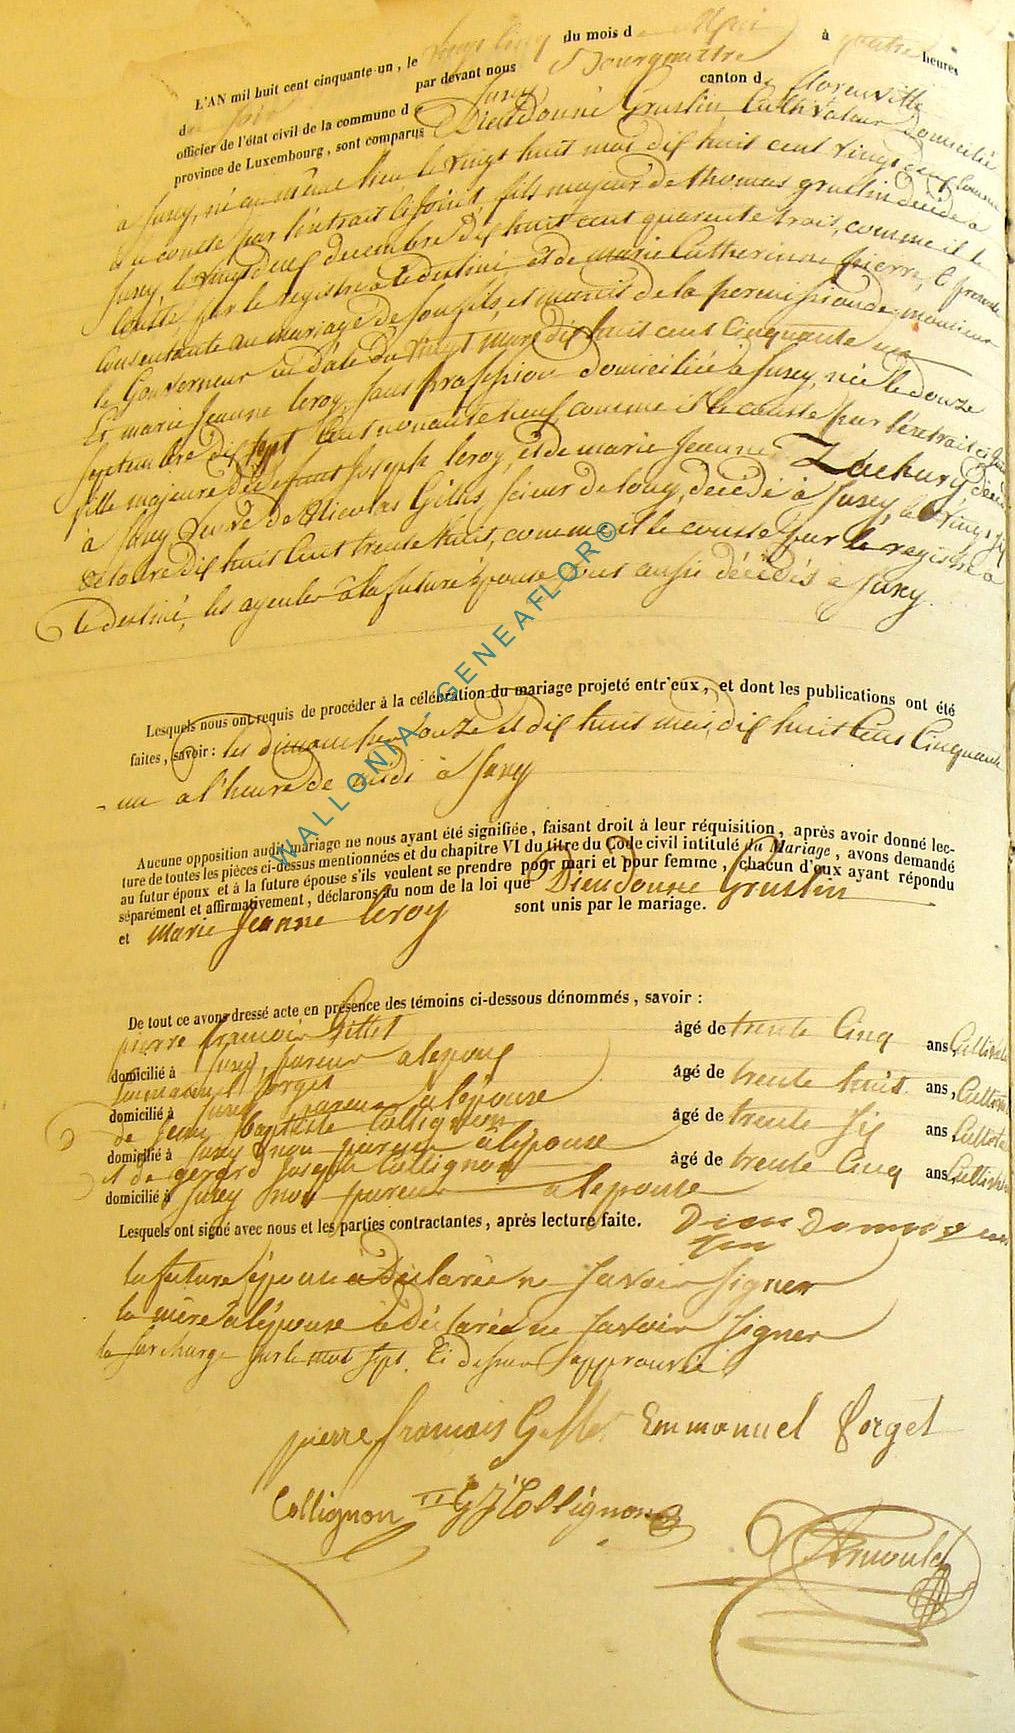 L'AN mil huit cent cinquante-un, le vingt cinq du mois de Mai à quatre heures
du soir par devant nous Bourgmestre
officier de l'état civil de la commune de Jusey canton de florenville
province de Luxembourg, sont comparus Dieudonné Grustin Cultivateur domicilié
à Jusey, né au même lieu le vingt huit mai dix huit cent vingt comme
il le conste par l'extrait ci joint, fils majeur de thomas grustin décédé à
Jusey, le vingt deux decembre dix huit cent quarante trois, comme il le
conste par le registre à ce destiné et de marie Catherinne pierre, ci presente
Consentante au mariage de son fils, et muni de la permission de monsieur
le Gouverneur en Date du vingt mars dix huit cent Cinquante un
Et marie Jeanne leroy, sans profession domiciliée à Jusey, née le douze
septembre dix sept Cent nonante neuf, comme il le conste par l'extrait ci joint
fille majeure de defunt Joseph leroy, et de marie Jeanne Zachary, décédés
à Jusey veuve de Nicolas Gillis, scieur de long, décédé à Jusey, le vingt six
octobre dix huit Cent trente huit, comme il le conste par le registre à
ce destiné, les ayeules à la future épouse sont aussi décédés à Jusey.
Lesquels nous ont requis de procéder à la célébration du mariage projeté entr'eux, et dont les publications ont été
faites, savoir: les dimanches onze et dix huit mai, dix huit Cent Cinquante
un a l'heure de midi à Jusey
Aucune opposition audit mariage ne nous ayant été signifiée, faisant droit à leur réquisition, après avoir donné lec-
ture de toutes les pièces ci-dessus mentionnées et du chapitre VI du titre du Code civil intitulé du Mariage, avons demandé
au futur époux et à la future épouse s'ils veulent se prendre pour mari et pour femme, chacun d'eux ayant répondu
séparément et affirmativement, déclarons au nom de la loi que Dieudonne Grustin
et Marie Jeanne leroy sont unis par le mariage.
De tout ce avons dressé acte en présence des témoins ci-dessous dénommés, savoir:
pierre francois Gillet âgé de trente Cinq ans, Cultivate
domicilié à Jusey, pareur a lepouse
Emmanuel forget âgé de trente huit ans,
domicilié à Jusey pareur a lépouse
de Jean baptiste Collignon âgé de trente six ans,
domicilié à Jusey non pareur à lépouse
et de gerard Joseph Collignon âgé de trente Cinq ans,
domicilié à Jusey non pareur a lepouse
Lesquels ont signé avec nous et les parties contractantes, après lecture faite.
la future épouse à Déclarée ne savoir signer
la mère à l'épouse à déclarée ne savoir signer
la surcharge sur le mot sept. Ci dessus approuvée
pierre francois Gillet Emmanuel forget
Collignon GJ Collignon
Arnould
WALLONIA-GENEAFLOR©